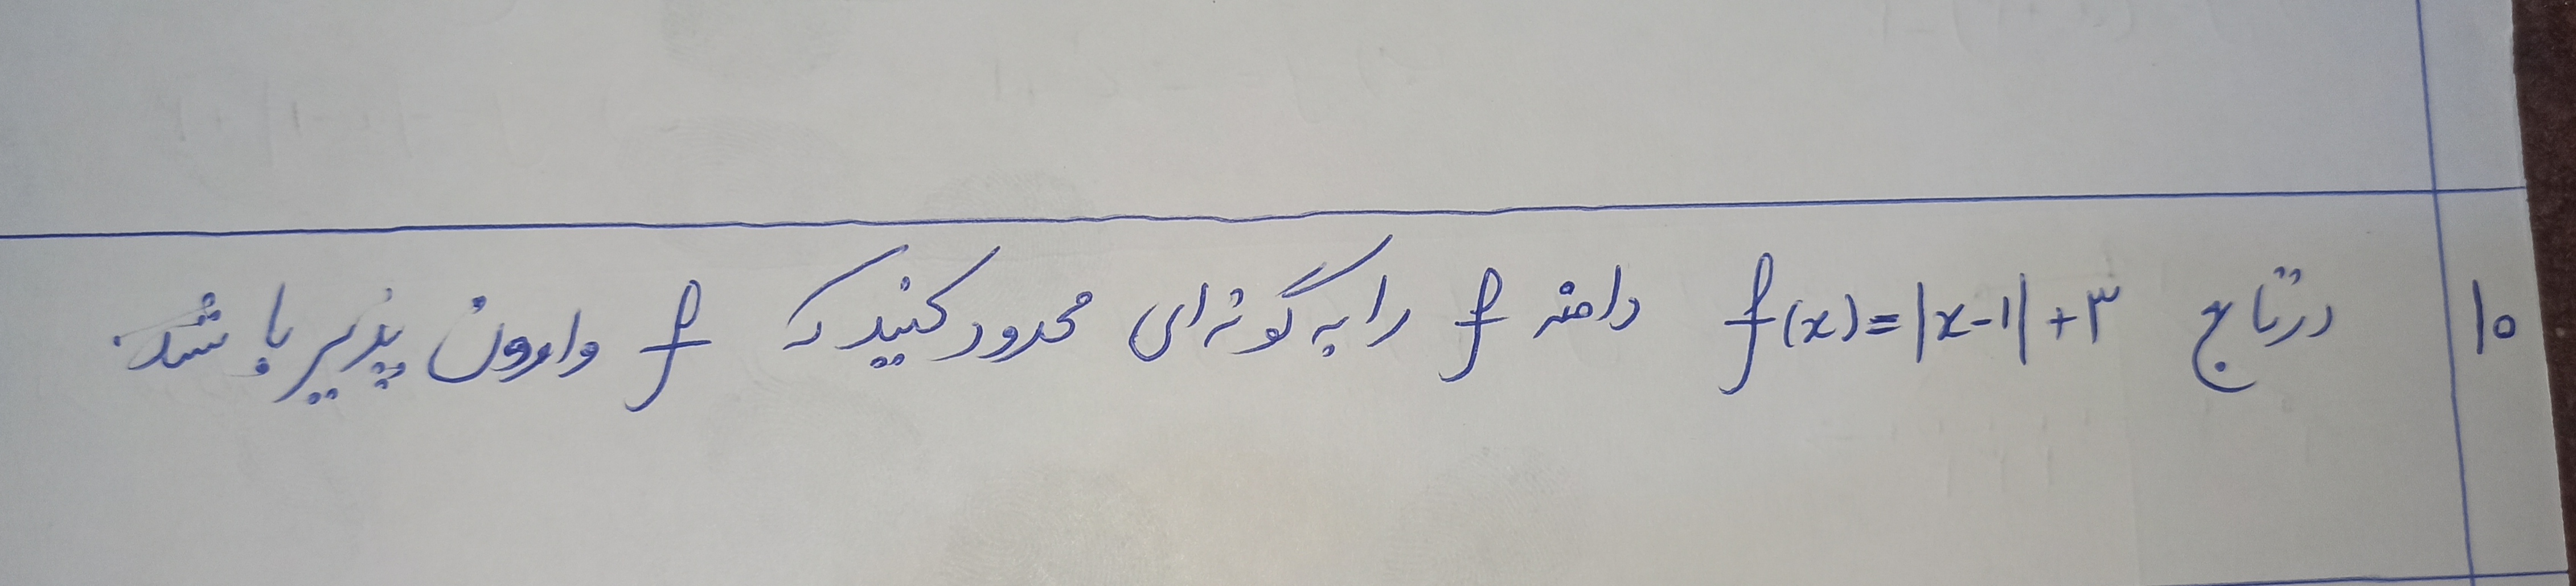 ۱۰ در تابع f(x)=|x-1|+۳ دامنه f را به گونه‌ای محدود کنید که f وارون پذیر باشد.